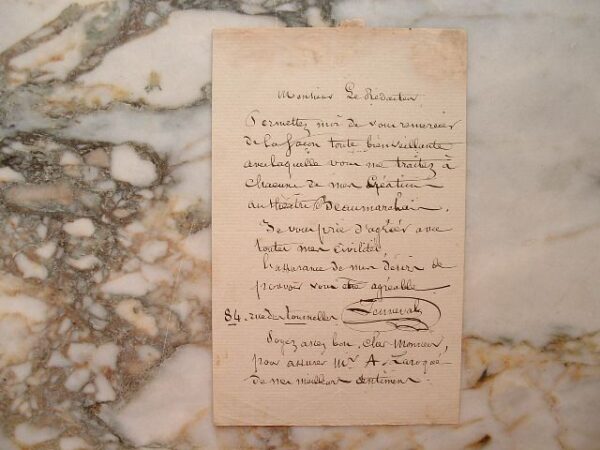 Monsieur Le Rédacteur,
Permettez moi de vous remercier
de la façon toute bienveillante
avec laquelle vous me traitez à
chacune de mes Créations
au théâtre Beaumarchais.
Je vous prie d'agréer avec
toutes mes civilités
l'assurance de mon désir de
pouvoir vous être agréable
84, rue des Tournelles
Soyez assez bon, cher Monsieur,
pour assurer Mr A. Laroque
de mes meilleurs sentimens.